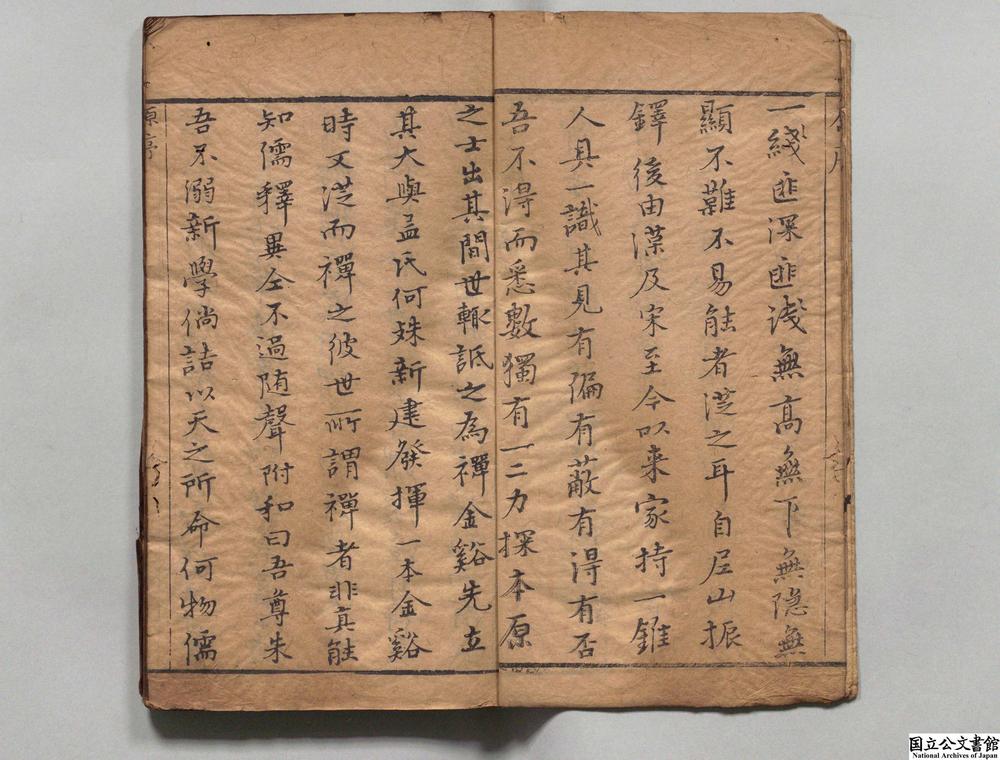 一綫匪深匪淺無高無下無隐無
顯不難不易能者從之耳自尼山振
鐸後由漢及宋至今以来家持一錐
人具一識其見有偏有蔽有得有否
吾不得而悉數獨有一二力探本原
之士出其間世輙詆之為禪金谿先立
其大與孟氏何殊新建發揮一本金谿
時又從而禪之彼世所謂禪者非真能
知儒釋異仝不過随聲附和曰吾尊朱
吾不溺新學倘詰以天之所命何物儒
原序
国立公文書館
National Archives of Japan